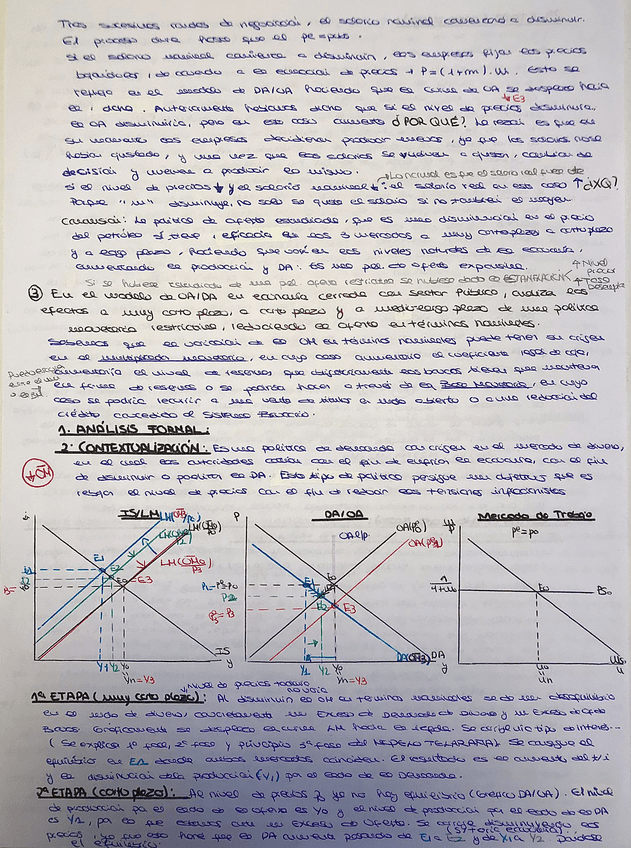 Tras sucesivas rondas de negociación, el salario nominal comenzará a disminuir.
El proceso dura hasta que el pe = pus.
si el salario nominal comienza a disminuir, las empresas fijan los precios
bajándolos, de acuerdo a la ecuación de precios P = (1+m)·W. Esto se
refleja en el modelo de DA/OA haciendo que la curva de OA se desplace hacia
la dcha. Anteriormente habíamos dicho que si el nivel de precios disminuía,
↓ E3
la OA disminuiría, pero en este caso aumenta ¿POR QUÉ? La razón es que en
su momento las empresas decidieron producir menos, ya que los salarios no se
habían ajustado, y una vez que los salarios se vuelven a ajustar, cambian de
decisión y vuelven a producir lo mismo.
Lo normal es que el salario real fuese cte
si el nivel de precios ↓ y el salario nominal ↓: el salario real en este caso ↑ ¿XQ?
Porque "m" disminuye, no solo se ajusta el salario si no también el margen
Conclusión: La política de oferta estudiada, que es una disminución en el precio
del petróleo sí tiene eficacia en los 3 mercados a muy corto plazo, a corto plazo
y a largo plazo, haciendo que varíen los niveles naturales de la economía,
aumentando la producción y DA: Es una pol. de oferta expansiva.
Si se hubiese estudiado una pol. oferta restrictiva se hubiese dado la ESTANFLACIÓN
↑ Nivel precios
↑ Tasa Desempleo
③ En el modelo de OA/DA en economía cerrada con Sector Público, analiza los
efectos a muy corto plazo, a corto plazo y a medio-largo plazo de una política
monetaria restrictiva, reduciendo la oferta en términos nominales.
Sabemos que la variación de la OM en términos nominales puede tener su origen
en el multiplicador monetario, en cuyo caso aumentaría el coeficiente legal de caja,
aumentaría el nivel de reservas que obligatoriamente los bancos tienen que mantener
en forma de reservas o se podría hacer a través de la Base Monetaria, en cuyo
caso se podría recurrir a una venta de títulos en mdo abierto o a una reducción del
crédito concedido al Sistema Bancario.
1. ANÁLISIS FORMAL:
2. CONTEXTUALIZACIÓN: Es una política de demanda con origen en el mercado de dinero,
en el cual las autoridades actúan con el fin de enfriar la economía, con el fin
↓OM
de disminuir o controlar la DA. Este tipo de política persigue un objetivo que es
reducir el nivel de precios con el fin de reducir las tensiones inflacionistas
IS/LM
DA/OA
Mercado de Trabajo
pe = p0
E1
E2
E0
E3
IS
Y1 Y2 Y0
Yn = Y3
P
DA
Y1 Y2 Y0
Yn = Y3
PS0
E0
1ª ETAPA (muy corto plazo): Al disminuir la OM en términos nominales se da un desequilibrio
Nivel de precios todavía no varía
en el mdo de dinero, concretamente un Exceso de Demanda de Dinero y un Exceso de Oferta de
Bonos. Gráficamente se desplaza la curva LM hacia la izqda. Se corrige vía tipo de interés...
(Se explica 1ª fase, 2ª fase y principio 3ª fase del MODELO TELARAÑA). Se consigue el
equilibrio en E1 donde ambos mercados coinciden. El resultado es un aumento del t/i
y una disminución de la producción (Y1) por el lado de la Demanda.
2ª ETAPA (corto plazo): Al nivel de precios P0 ya no hay equilibrio (Gráfico DA/OA). El nivel
de producción por el lado de la oferta es Y0 y el nivel de producción por el lado de la DA
es Y1, por lo que estamos ante un Exceso de Oferta. Se corrige disminuyendo los
precios, ya que esto hace que la DA aumente pasando de E1 a E2 y de Y1 a Y2. Dándose
el equilibrio.